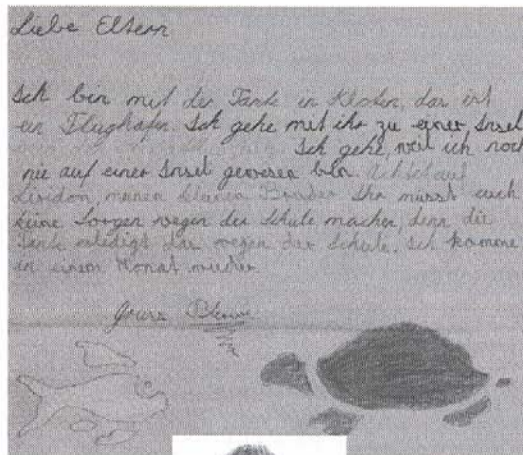 Liebe Eltern
Ich bin mit der Tante in Kloten, das ist
ein Flughafen. Ich gehe mit ihr zu einer Insel
Ich gehe, weil ich noch
nie auf einer Insel gewesen bin. Acht auf
meinen kleinen Bruder. Ihr müsst euch
keine Sorgen wegen der Schule machen, denn die
Tante erledigt das wegen der Schule. Ich komme
in einem Monat wieder.
Yours